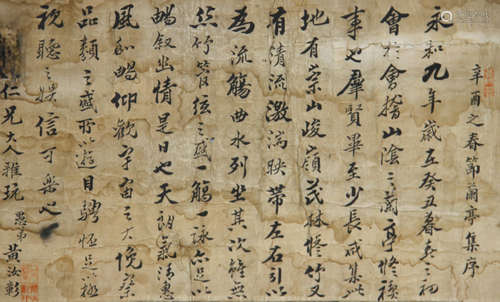 辛酉之春節蘭亭集序
永和九年歲在癸丑暮春之初
會於會稽山陰之蘭亭修禊
事也羣賢畢至少長咸集此
地有崇山峻嶺茂林修竹又
有清流激湍映帶左右引以
為流觴曲水列坐其次雖無
絲竹管弦之盛一觴一詠亦足以
暢敘幽情是日也天朗氣清惠
風和暢仰觀宇宙之大俛察
品類之盛所以遊目騁懷足以極
視聽之娛信可樂也
仁兄大人雅玩
愚弟黃汝彰